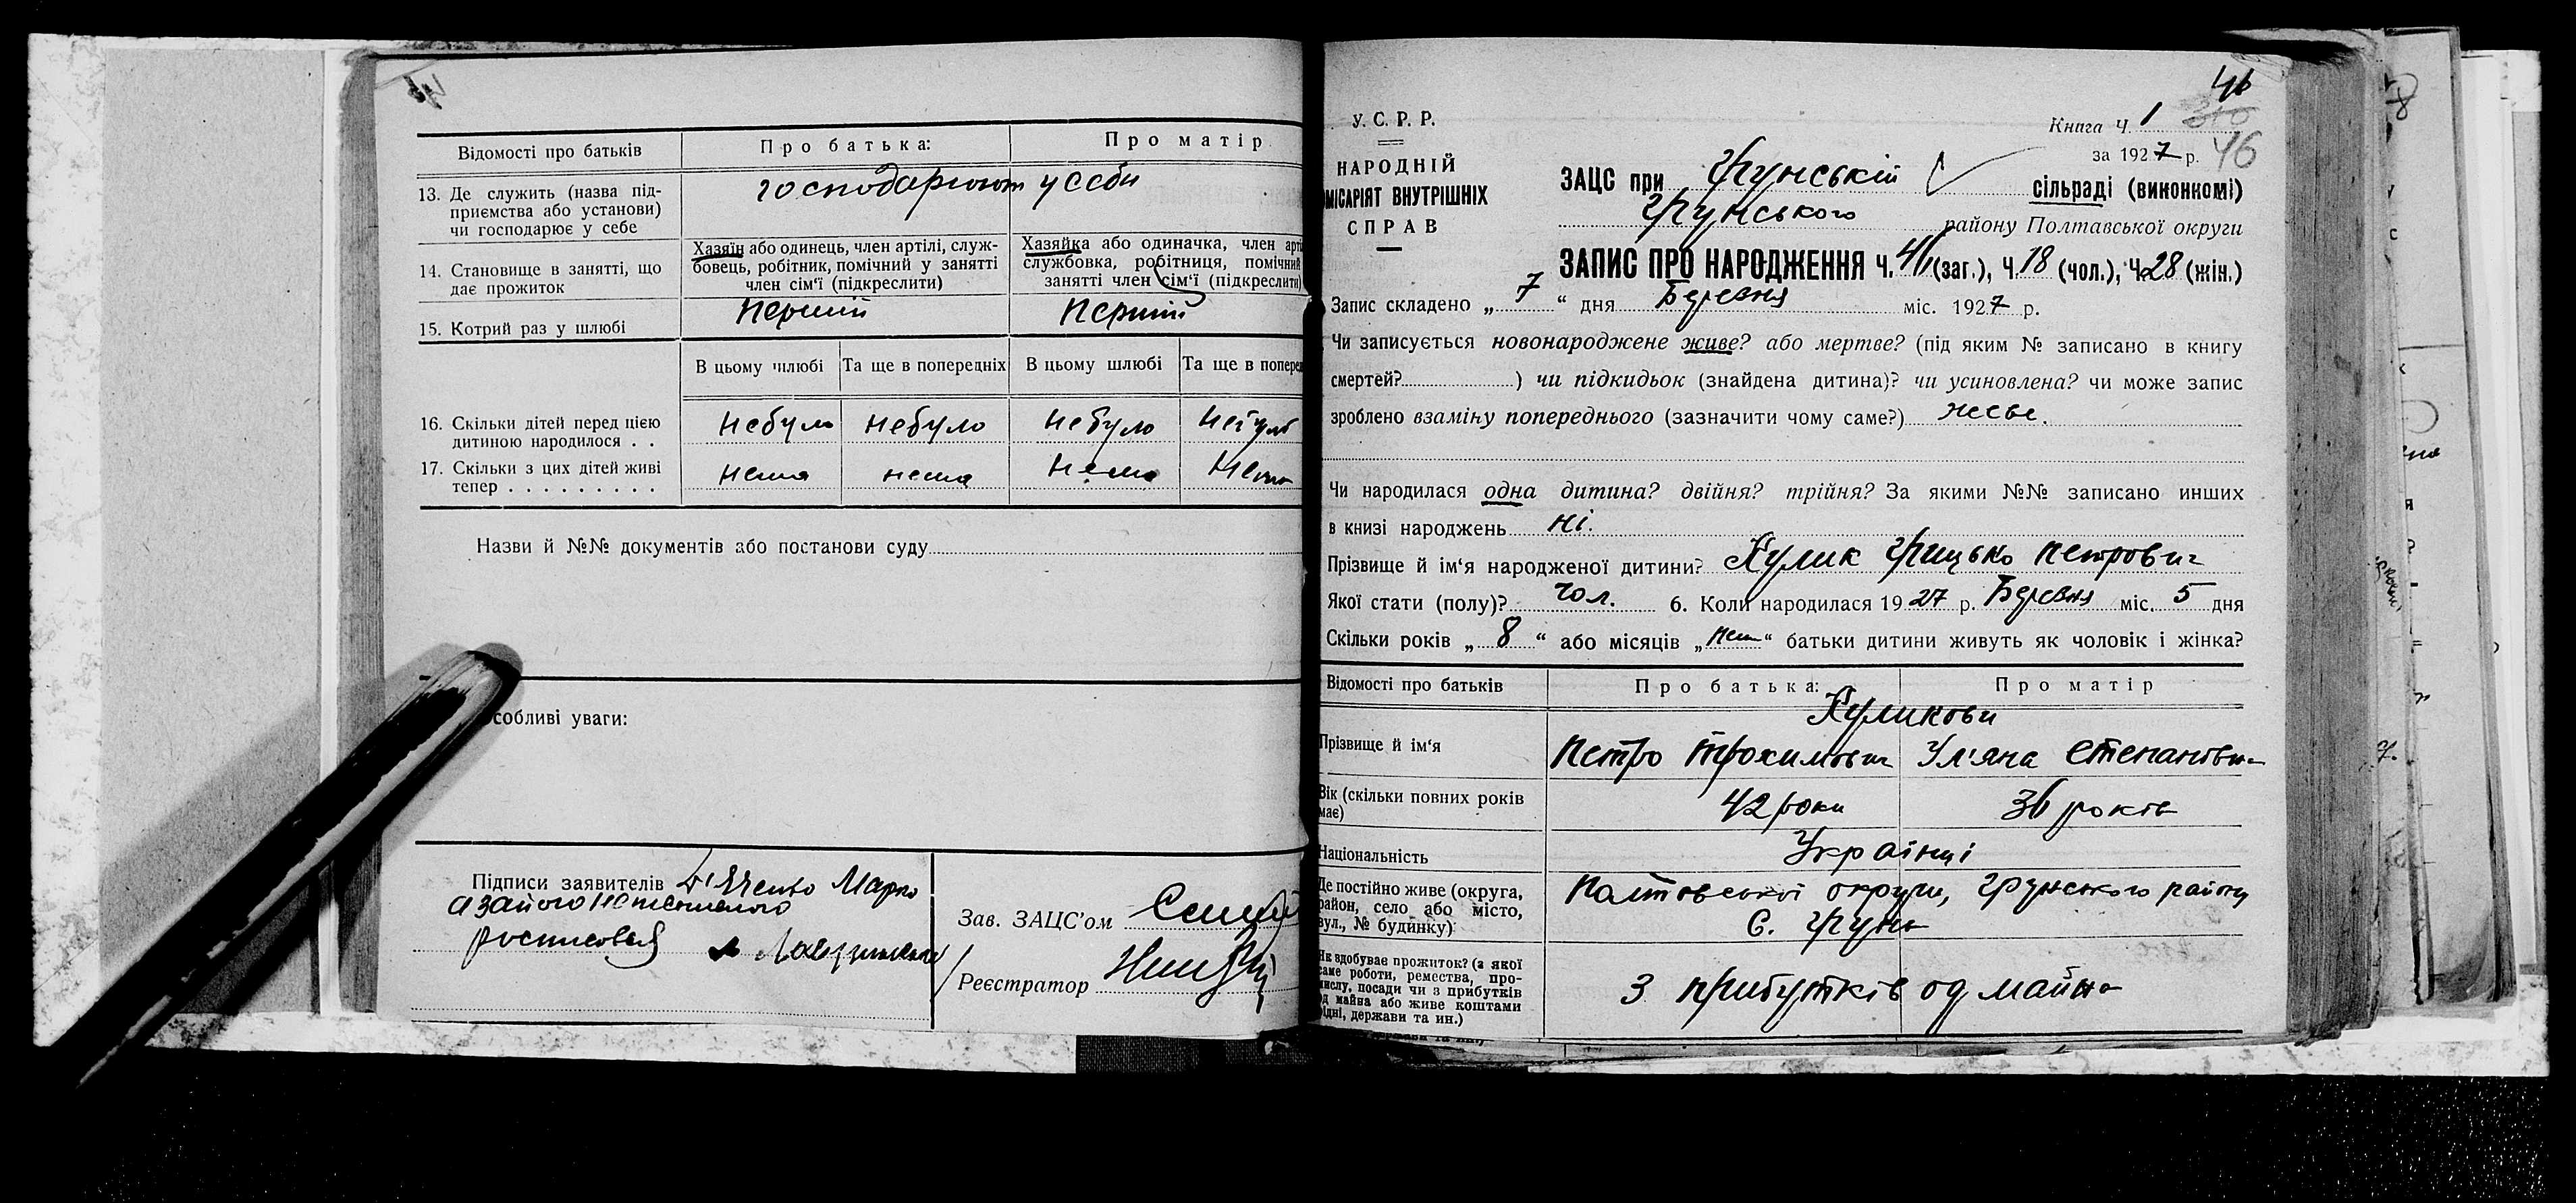 Відомості про батьків
Про батька:
Про матір
13. Де служить (назва під-
приємства або установи)
чи господарює у себе
господарюют у себи
14. Становище в занятті, що
дає прожиток
Хазяїн або одинець, член артілі, служ-
бовець, робітник, помічний у занятті
член сім'ї (підкреслити)
Хазяйка або одиначка, член арті
службовка, робітниця, помічний
занятті член сім'ї (підкреслити)
15. Котрий раз у шлюбі
перший
перший
В цьому шлюбі
Та ще в попередніх
В цьому шлюбі
Та ще в попере
16. Скільки дітей перед цією
дитиною народилося . .
небуло
небуло
небуло
небуло
17. Скільки з цих дітей живі
тепер . . . . . . . . .
нема
нема
нема
нема
Назви й №№ документів або постанови суду
собливі уваги:
Підписи заявителів Д'яченко Марко
а за його неписьменого
росписовся
Зав. ЗАЦС'ом
Реєстратор
46
У. С. Р. Р.
НАРОДНІЙ
МІСАРІЯТ ВНУТРІШНІХ
СПРАВ
Книга Ч. 1
46
за 1927 р.
ЗАЦС при Грунській сільраді (виконкомі)
Грунського району Полтавської округи
ЗАПИС ПРО НАРОДЖЕННЯ Ч. 46 (заг.), Ч. 18 (чол.), Ч. 28 (жін.)
Запис складено „ 7 “ дня Березня міс. 1927 р.
Чи записується новонароджене живе? або мертве? (під яким № записано в книгу
смертей? ) чи підкидьок (знайдена дитина)? чи усиновлена? чи може запис
зроблено взаміну попереднього (зазначити чому саме?) живе.
Чи народилася одна дитина? двійня? трійня? За якими №№ записано инших
в книзі народжень ні.
Прізвище й ім'я народженої дитини? Кулик Грицько Петрович
Якої стати (полу)? чол. 6. Коли народилася 1927 р. Березня міс. 5 дня
Скільки років „ 8 “ або місяців „ “ батьки дитини живуть як чоловік і жінка?
Відомості про батьків
Про батька:
Про матір
Куликови
Прізвище й ім'я
Петро Трохимович
Ул'яна Степановна
Вік (скільки повних років
має)
42 роки
36 років
Національність
Українці
Де постійно живе (округа,
район, село або місто,
вул., № будинку)
Полтовської округи, Грунського району
С. Грунь
Як здобуває прожиток? (з якої
саме роботи, ремества, про-
мислу, посади чи з прибутків
од майна або живе коштами
рідні, держави та ин.)
З прибутків од майна